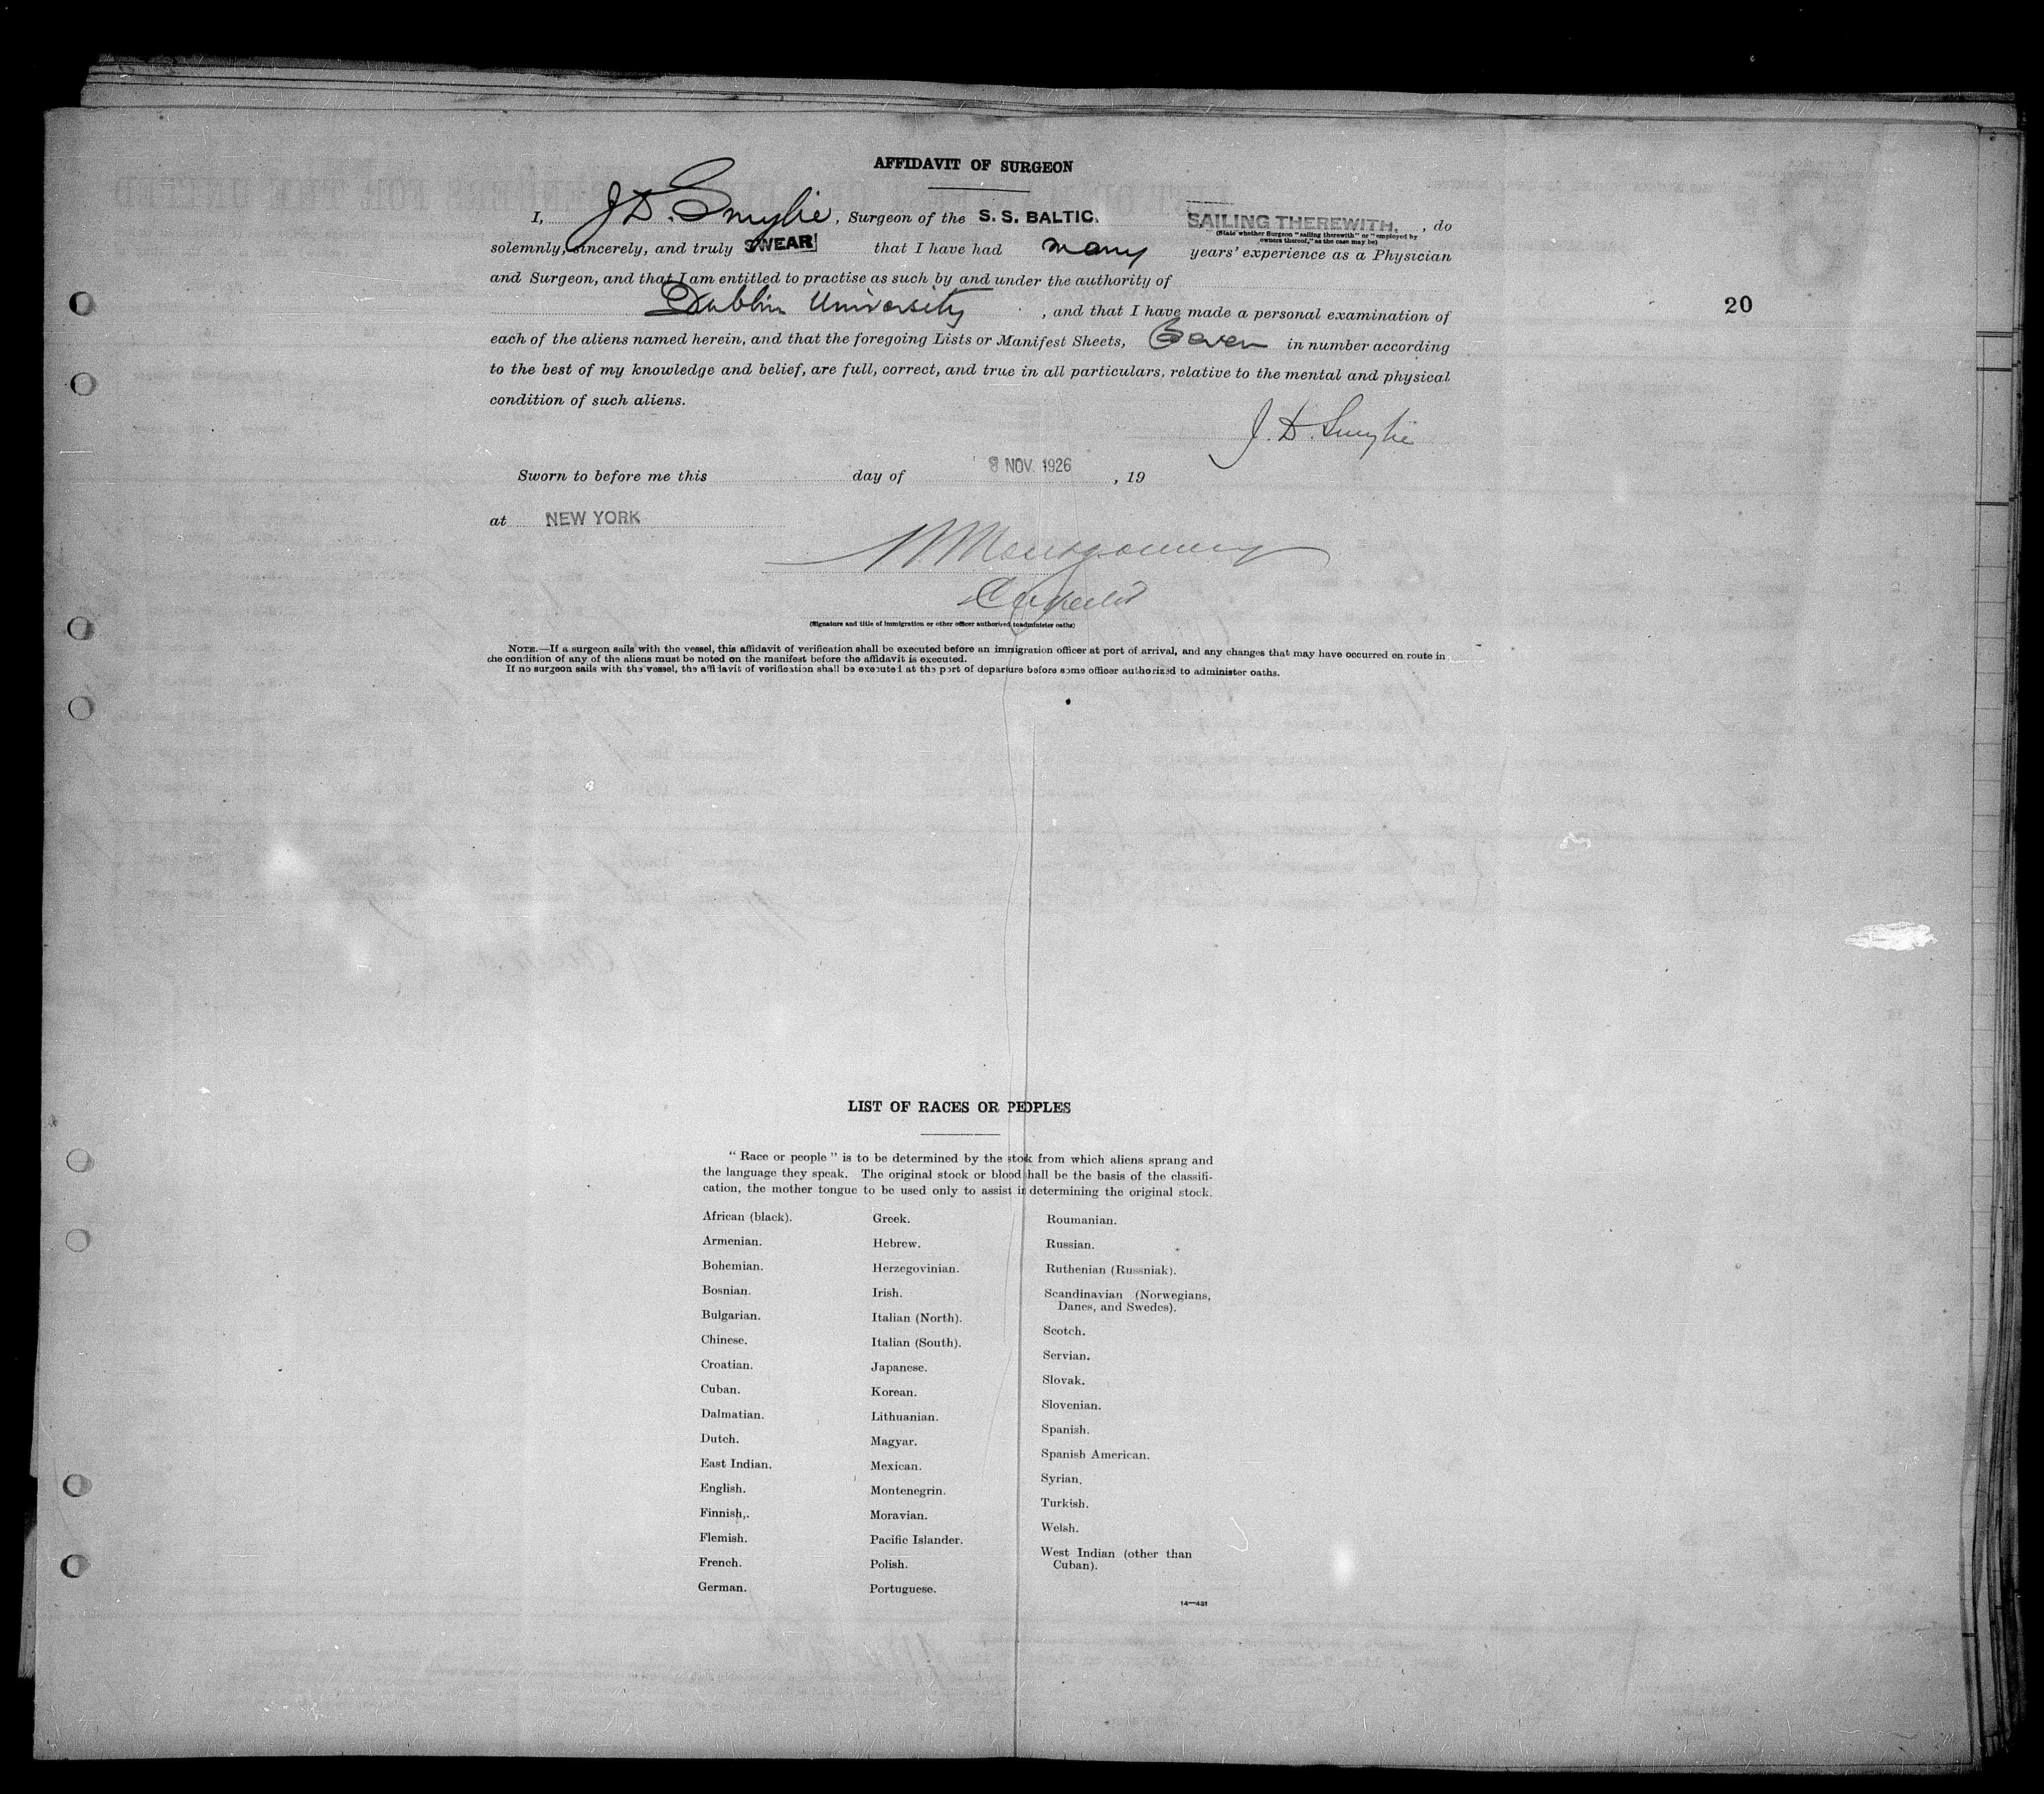 AFFIDAVIT OF SURGEON
I, J. D. Smylie, Surgeon of the S. S. BALTIC. SAILING THEREWITH, , do
(State whether Surgeon "sailing therewith" or "employed by
owners thereof," as the case may be)
solemnly, sincerely, and truly SWEAR that I have had many years' experience as a Physician
and Surgeon, and that I am entitled to practise as such by and under the authority of
Dublin University , and that I have made a personal examination of
20
each of the aliens named herein, and that the foregoing Lists or Manifest Sheets, Seven in number according
to the best of my knowledge and belief, are full, correct, and true in all particulars, relative to the mental and physical
condition of such aliens.
J. D. Smylie
Sworn to before me this day of 8 NOV. 1926 , 19
at NEW YORK
Montgomery
(Signature and title of immigration or other officer authorized to administer oaths)
NOTE.—If a surgeon sails with the vessel, this affidavit of verification shall be executed before an immigration officer at port of arrival, and any changes that may have occurred en route in
the condition of any of the aliens must be noted on the manifest before the affidavit is executed.
If no surgeon sails with the vessel, the affidavit of verification shall be executed at the port of departure before some officer authorized to administer oaths.
LIST OF RACES OR PEOPLES
"Race or people" is to be determined by the stock from which aliens sprang and
the language they speak. The original stock or blood shall be the basis of the classifi-
cation, the mother tongue to be used only to assist in determining the original stock.
African (black).
Armenian.
Bohemian.
Bosnian.
Bulgarian.
Chinese.
Croatian.
Cuban.
Dalmatian.
Dutch.
East Indian.
English.
Finnish,.
Flemish.
French.
German.
Greek.
Hebrew.
Herzegovinian.
Irish.
Italian (North).
Italian (South).
Japanese.
Korean.
Lithuanian.
Magyar.
Mexican.
Montenegrin.
Moravian.
Pacific Islander.
Polish.
Portuguese.
Roumanian.
Russian.
Ruthenian (Russniak).
Scandinavian (Norwegians,
Danes, and Swedes).
Scotch.
Servian.
Slovak.
Slovenian.
Spanish.
Spanish American.
Syrian.
Turkish.
Welsh.
West Indian (other than
Cuban).
14—431